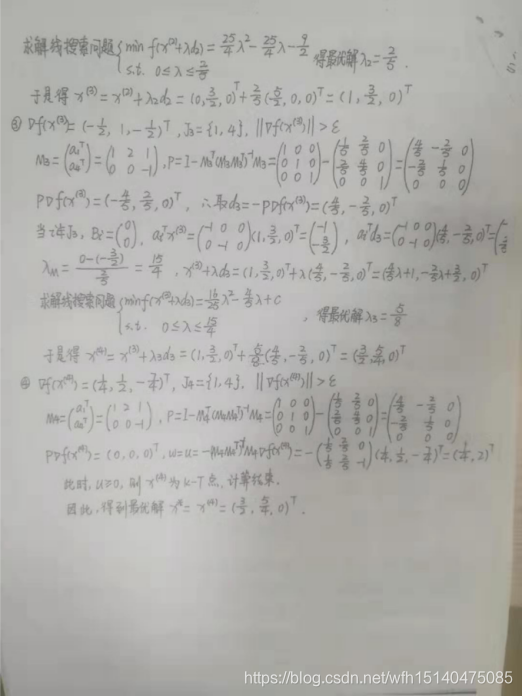 求解线搜索问题{min f(x⁽²⁾+λd₂) = 25/4 λ² - 25/4 λ - 9/2
s.t. 0≤λ≤2/5 得最优解 λ₂ = 2/5.
于是得 x⁽³⁾ = x⁽²⁾+λ₂d₂ = (0, 3/2, 0)ᵀ + 2/5 (5/2, 0, 0)ᵀ = (1, 3/2, 0)ᵀ
③ ∇f(x⁽³⁾) = (-1/2, 1, -1/2)ᵀ, J₃ = {1, 4}, ||∇f(x⁽³⁾)|| > ε
M₃ = (a₁ᵀ; a₄ᵀ) = (1 2 1; 0 0 -1), P = I - M₃ᵀ(M₃M₃ᵀ)⁻¹M₃ = (1 0 0; 0 1 0; 0 0 1) - (1/5 2/5 0; 2/5 4/5 0; 0 0 1) = (4/5 -2/5 0; -2/5 1/5 0; 0 0 0)
P∇f(x⁽³⁾) = (-4/5, 2/5, 0)ᵀ, ∴取 d₃ = -P∇f(x⁽³⁾) = (4/5, -2/5, 0)ᵀ
当 i∉J₃, bᵢ = (0; 0), aᵢᵀx⁽³⁾ = (-1 0 0; 0 -1 0)(1, 3/2, 0)ᵀ = (-1; -3/2), aᵢᵀd₃ = (-1 0 0; 0 -1 0)(4/5, -2/5, 0)ᵀ =
λM = (0-(-3/2))/(2/5) = 15/4, x⁽³⁾+λd₃ = (1, 3/2, 0)ᵀ + λ(4/5, -2/5, 0)ᵀ = (4/5 λ+1, -2/5 λ+3/2, 0)ᵀ
求解线搜索问题{min f(x⁽³⁾+λd₃) = 16/25 λ² - 4/5 λ + C
s.t. 0≤λ≤15/4 , 得最优解 λ₃ = 5/8
于是得 x⁽⁴⁾ = x⁽³⁾+λ₃d₃ = (1, 3/2, 0)ᵀ + 5/8 (4/5, -2/5, 0)ᵀ = (3/2, 5/4, 0)ᵀ
④ ∇f(x⁽⁴⁾) = (1/4, 1/2, -7/4)ᵀ, J₄ = {1, 4}, ||∇f(x⁽⁴⁾)|| > ε
M₄ = (a₁ᵀ; a₄ᵀ) = (1 2 1; 0 0 -1), P = I - M₄ᵀ(M₄M₄ᵀ)⁻¹M₄ = (1 0 0; 0 1 0; 0 0 1) - (1/5 2/5 0; 2/5 4/5 0; 0 0 1) = (4/5 -2/5 0; -2/5 1/5 0; 0 0 0)
P∇f(x⁽⁴⁾) = (0, 0, 0)ᵀ, w = u = -(M₄M₄ᵀ)⁻¹M₄∇f(x⁽⁴⁾) = -(1/5 2/5 0; 1/5 2/5 -1)(1/4, 1/2, -7/4)ᵀ = (1/4, 2)ᵀ
此时, u≥0, 则 x⁽⁴⁾ 为 K-T点, 计算结束.
因此, 得到最优解 x* = x⁽⁴⁾ = (3/2, 5/4, 0)ᵀ.
https://blog.csdn.net/wfh15140475085